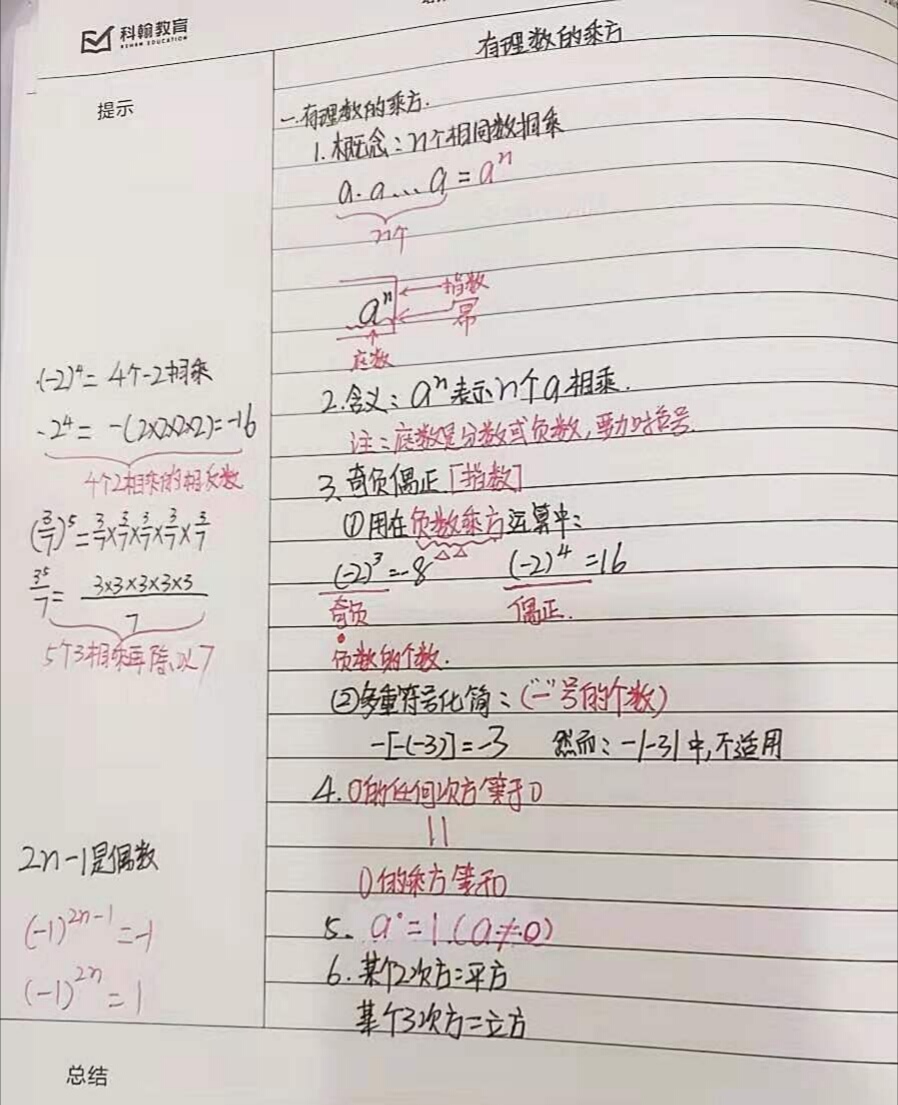 科翰教育
KEHAN EDUCATION
有理数的乘方
提示
一.有理数的乘方.
1.概念:n个相同数相乘
a·a…a=aⁿ
n个
aⁿ
指数
幂
底数
2.含义:aⁿ表示n个a相乘.
注:底数是分数或负数,要加括号.
3.奇负偶正[指数]
①用在负数乘方运算中:
(-2)³=-8 (-2)⁴=16
奇负 偶正.
负数的个数.
②多重符号化简:(“-”号的个数)
-[-(-3)]=-3 然而:-|-3|中,不适用
4.0的任何次方等于0
||
0的乘方等于0
5.a⁰=1.(a≠0)
6.某个2次方=平方
某个3次方=立方
(-2)⁴=4个-2相乘
-2⁴=-(2×2×2×2)=-16
4个2相乘的相反数
(3/7)⁵=3/7×3/7×3/7×3/7×3/7
3⁵/7=3×3×3×3×3/7
5个3相乘再除以7
2n-1是偶数
(-1)²ⁿ⁻¹=-1
(-1)²ⁿ=1
总结